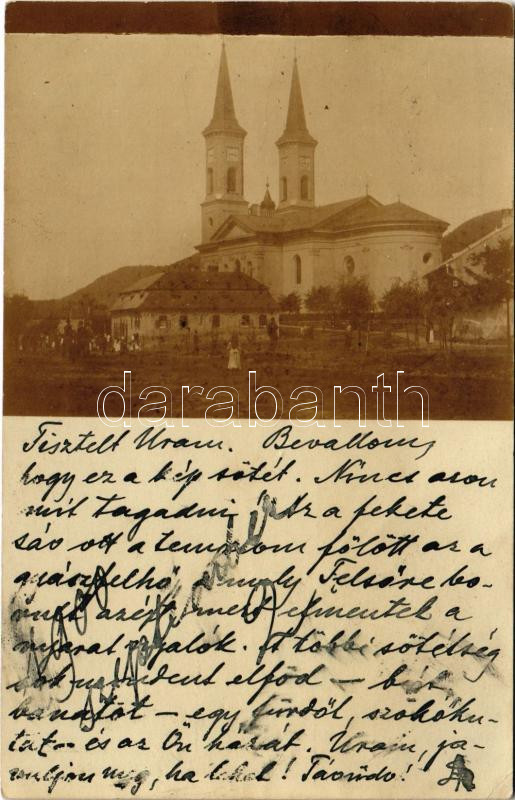 darabanth
Tisztelt Uram. Bevallom,
hogy ez a kép sötét. Nincs azon
mit tagadni. Az a fekete
sáv ott a templom fölött az a
gyászfelhő, amely Felsőre bo-
rult azért, mert elmentek a
nyaralók. A többi sötétség
sok mindent elföd –
bánatot – egy fürdőt, szökőku-
tat – és az Ön házát. Uram, ja-
vuljon meg, ha lehet! Távírdo!